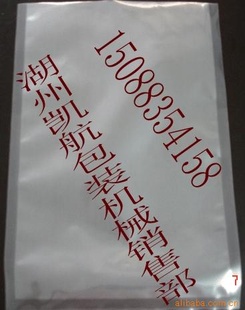 15088354158
湖州凯航包装机械销售部
7
alibaba.com.cn